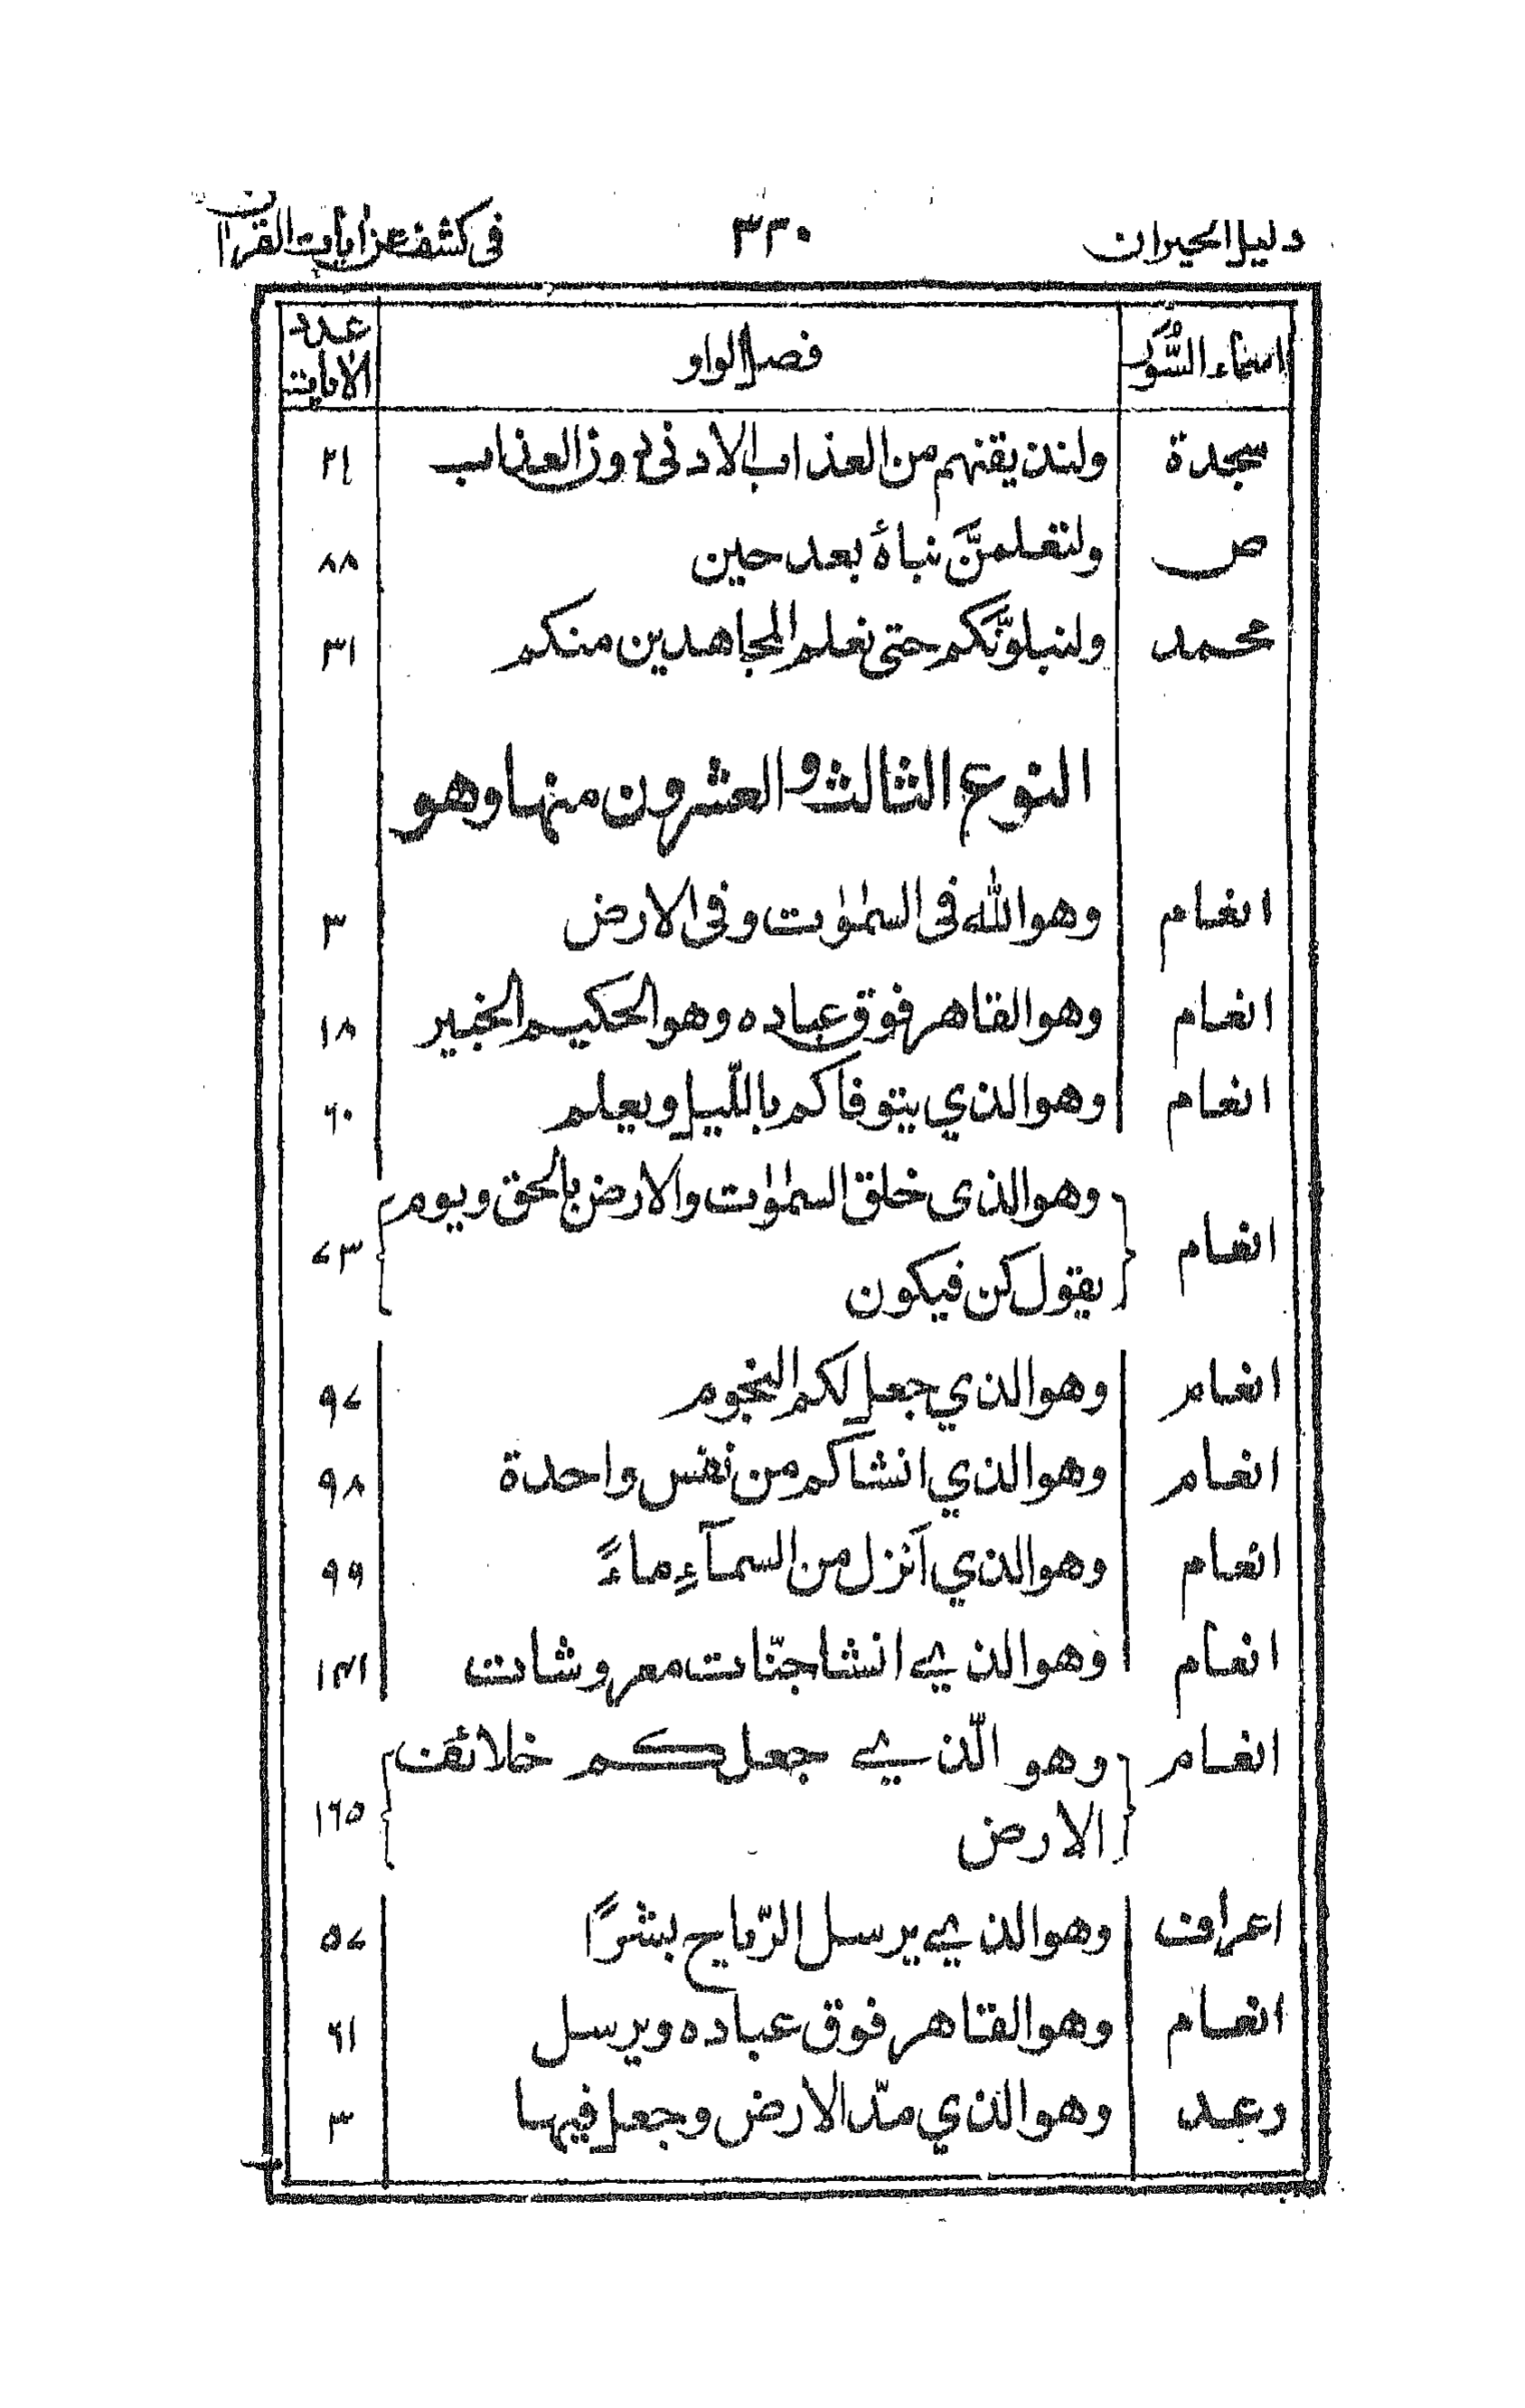 دليل الحيران ٣٣٠ فى كشف عن ايات القران
اسماء السُّوَر فصل الواو عدد الايات
سجدة ولنذيقنهم من العذاب الادنى دون العذاب ٢١
ص ولتعلمنَّ نباهٔ بعد حين ٨٨
محمد ولنبلوَنَّكم حتى نعلم المجاهدين منكم ٣١
النوع الثالث والعشرون منها وهو
انعام وهو الله فى السمٰوٰت وفى الارض ٣
انعام وهو القاهر فوق عباده وهو الحكيم الخبير ١٨
انعام وهو الذي يتوفاكم باللّيل ويعلم ٦٠
انعام وهو الذى خلق السمٰوٰت والارض بالحق ويوم ٧٣
يقول كن فيكون
انعام وهو الذي جعل لكم النجوم ٩٧
انعام وهو الذي انشاكم من نفس واحدة ٩٨
انعام وهو الذي اَنزل من السمآءِ ماءً ٩٩
انعام وهو الذي انشا جنّات معروشات ١٤١
انعام وهو الّذي جعلكم خلائف ١٦٥
الارض
اعراف وهو الذي يرسل الرّياح بشرًا ٥٧
انعام وهو القاهر فوق عباده ويرسل ٦١
رعد وهو الذي مدّ الارض وجعل فيها ٣